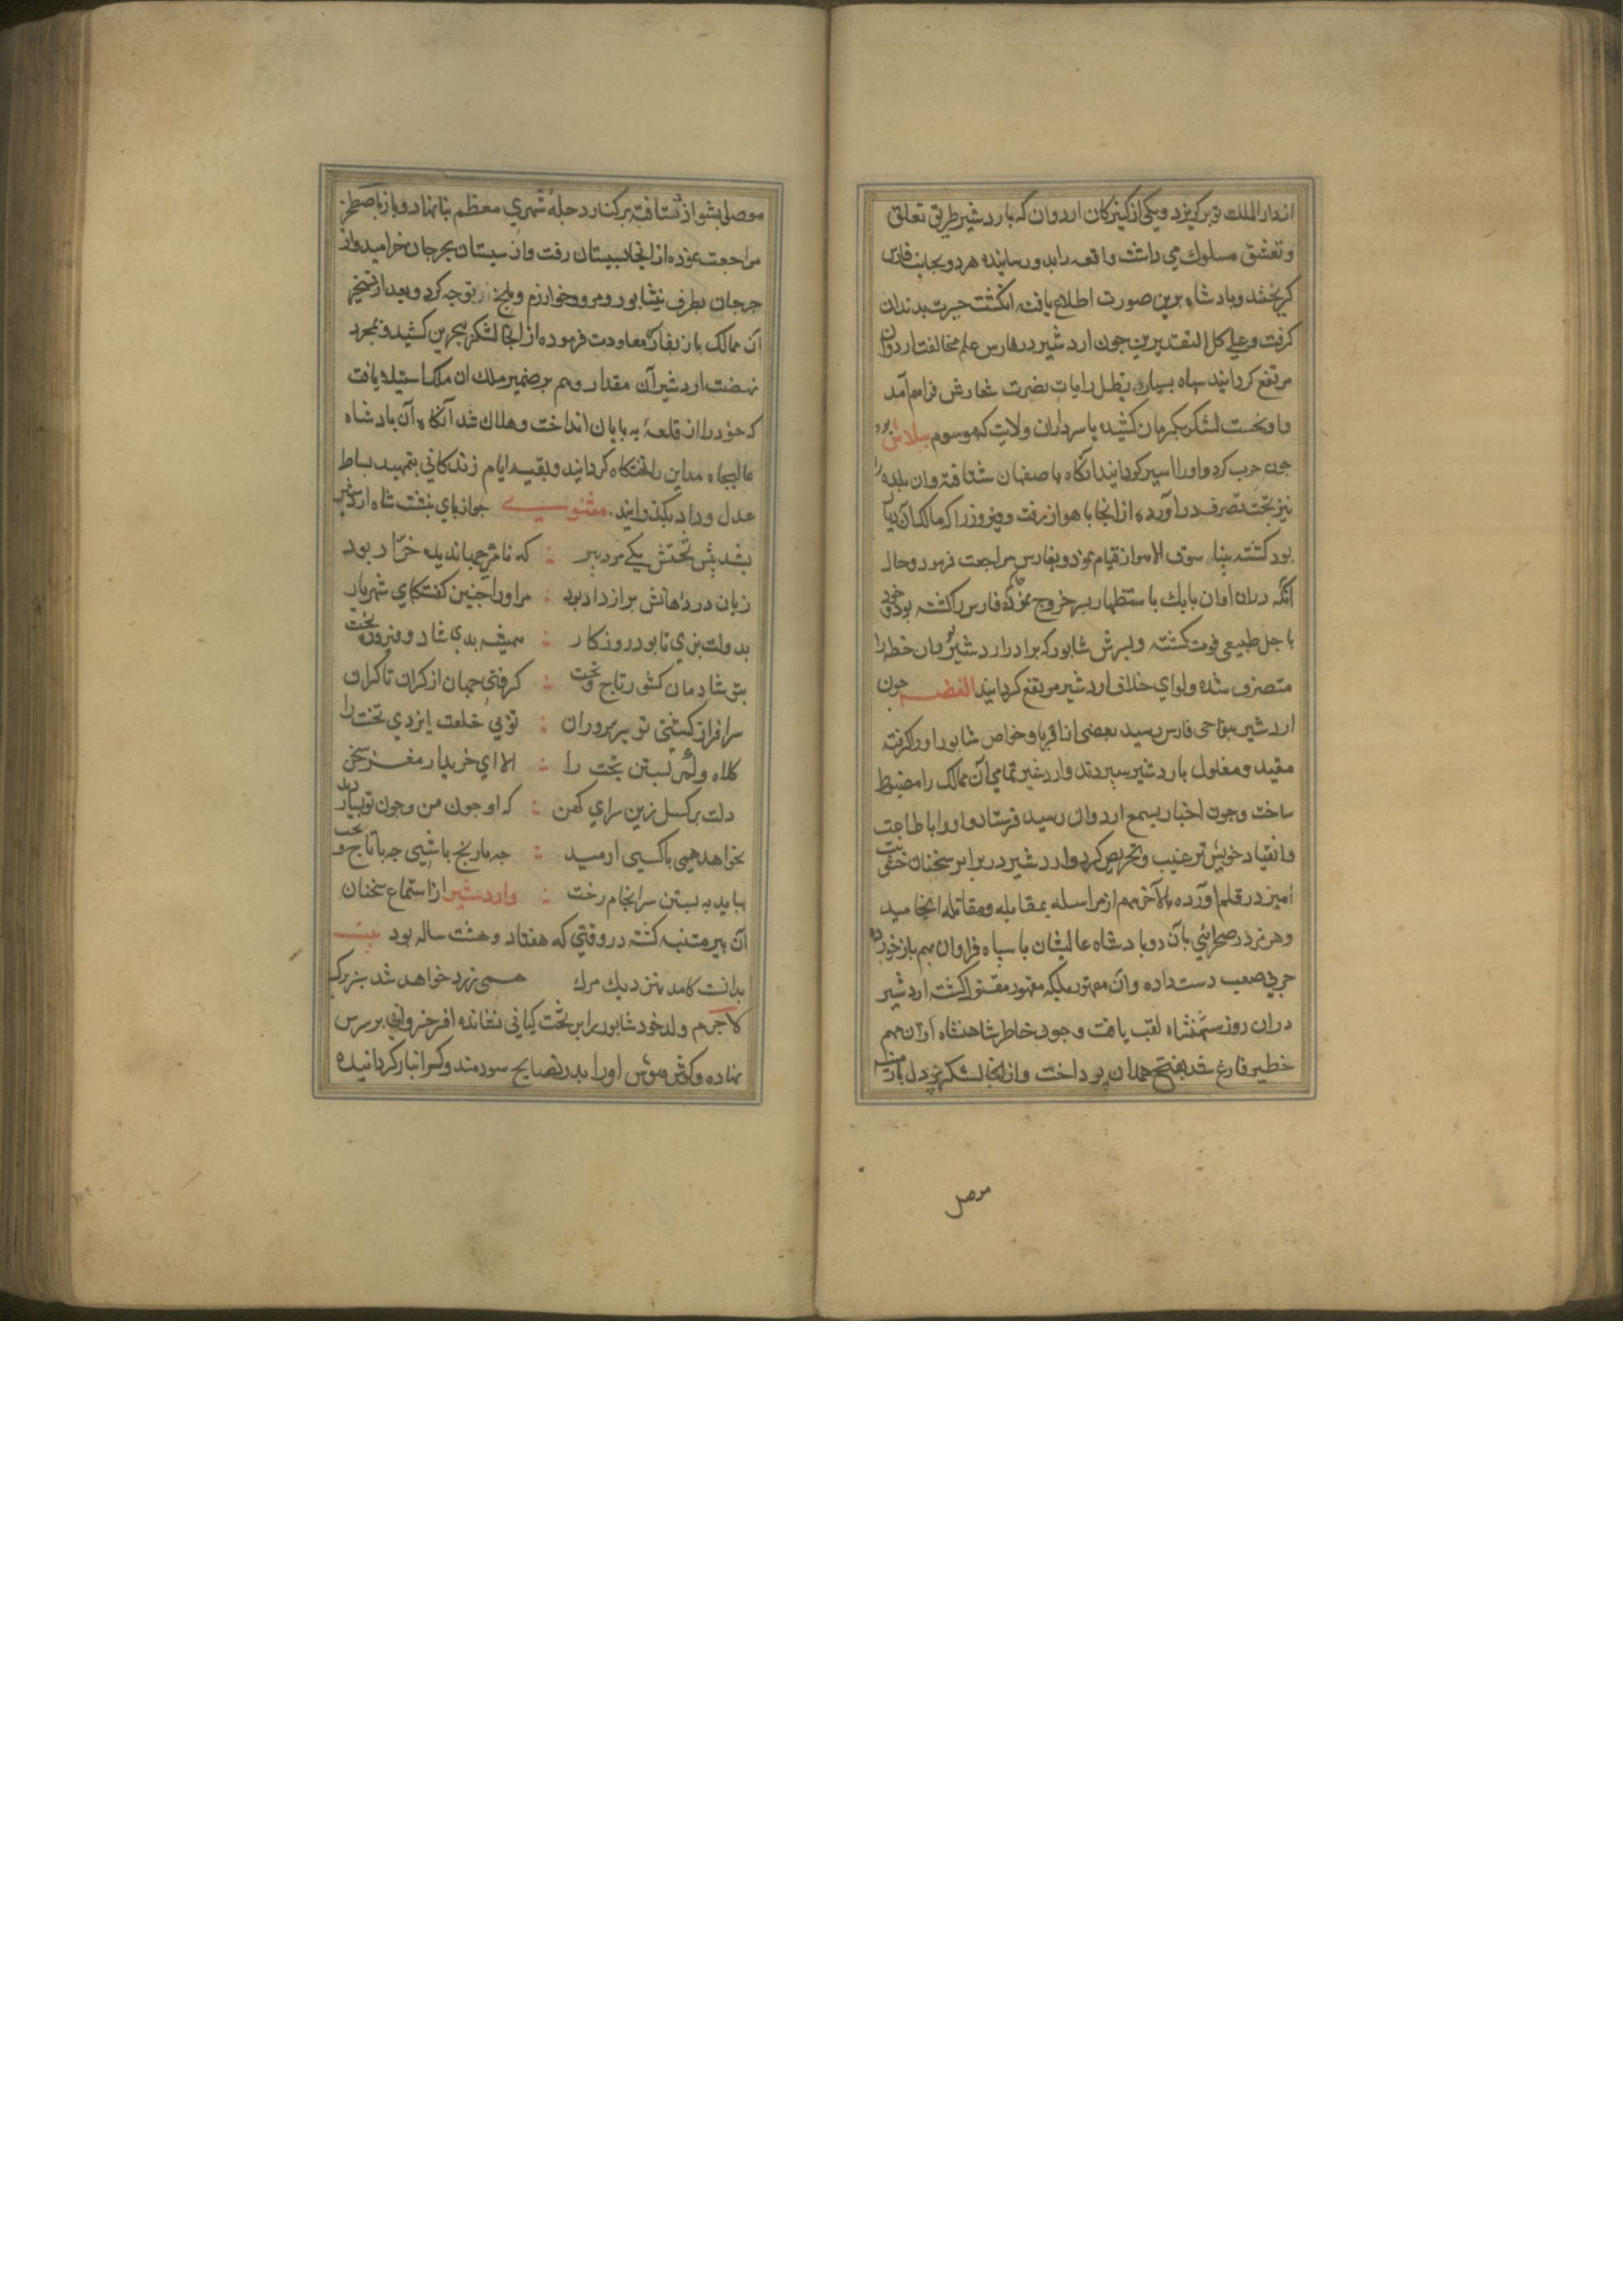 از دار الملك ری بگریزد و یکی از کنیزکان اردوان که باردشیر طریق تعلق
و تعشق مسلوك می داشت واقعه را بدو رسانیده هر دو بجانب فارس
گریختند و پادشاه برین صورت اطلاع یافته انگشت حیرت بدندان
گرفت و علی کل التقدیرین چون اردشیر در فارس علم مخالفت اردوان
مرتفع گردانید سپاه بسیار بظل رایات نصرت شعارش فراهم آمد
و او نخست لشکر بکرمان کشیده با سردار آن ولایت که موسوم ببلاش بود
چون حرب کرد و او را اسیر گردانید آنگاه باصفهان شتافته و آن بلده را
نیز بتحت تصرف درآورده از انجا باهواز رفت و فیروز را که مالك آن دیار
بود کشته ببناء سوق الاهواز قیام نمود و بفارس مراجعت فرمود و حال
آنکه دران اوان بابك باستظهار پسر خروج نموده حاکم فارس را کشته بود و خود
باجل طبیعی فوت گشته و پسرش شاپور که برادر اردشیر بود بران خطه را
متصرف شده و لوای خلاف اردشیر مرتفع گردانید القصه چون
اردشیر بنواحی فارس رسید بعضی از اقربا و خواص شاپور او را گرفته
مقید و مغلول باردشیر سپردند و اردشیر تمامی آن ممالك را مضبوط
ساخت و چون اخبار بسمع اردوان رسید فرستاد و او را باطاعت
و انقیاد خویش ترغیب و تحریص کرد و اردشیر در برابر سخنان خشونت
آمیز در قلم آورده بالآخر مهم از مراسله بمقابله و مقاتله انجامید
و هرمزد در صحرائی بآن دو پادشاه عالیشان با سپاه فراوان بهم بازخورده
حربی صعب دست داده و آن مهتور بلکه مقهور مقتول گشته اردشیر
دران روز شهنشاه لقب یافت و چون خاطر شاهنشاه از آن مهم
خطیر فارغ شد بفتح همدان پرداخت و از انجا لشکر پردل بآذربایجان و ارمنیه
موصل
موصل بسواد شتافته بر کنار دجله شهری معظم بنا نهاد و باز باصطخر
مراجعت نموده از انجا بسیستان رفت و از سیستان بجرجان خرامید و از
جرجان بطرف نیشابور و مرو و خوارزم و بلخ توجه کرد و بعد از تسخیر
آن ممالك باز بفارس معاودت فرموده از انجا لشکر ببحرین کشید و بمجرد
نهضت اردشیر آن مقدار وهم بر ضمیر ملك ان ملك استیلا یافت
که خود را از قلعه به پایان انداخت و هلاك شد آنگاه آن پادشاه
عالیجاه مداین را تختگاه گردانید و بقیه ایام زندگانی بتمهید بساط
عدل و داد بگذرانید. مثنوی چو از پای بنشست شاه اردشیر
بشد پیش تختش یکی مرد پیر : که نامش جهاندیده خراد بود
زبان در دهانش براز داد بود : مر او را چنین گفت کای شهریار
بدولت بزی تا بود روزگار : همیشه بدی شاد و فیروز بخت
بتو شادمان کشور تاج و تخت : گرفتی جهان از کران تا کران
سرافراز گشتی تو بر سروران : توئی خلعت ایزدی تخت را
کلاه و کمر بستن بخت را : الا ای خریدار مغز سخن
دلت برگسل زین سرای کهن : که او چون من و چون تو بسیار دید
نخواهد همی با کسی آرمید : چه با رنج باشی چه با تاج و تخت
بباید به بستن سرانجام رخت : و اردشیر از استماع سخنان
آن پیر متنبه گشته در وقتی که هفتاد و هشت ساله بود بیت
بدانست کامد بنزدیك مرك همی زرد خواهد شد سبز برك
لاجرم ولد خود شاپور را بر تخت کیانی نشانده افسر خسروانی بر سرش
نهاده و گوش هوش او را بدرر نصایح سودمند و گرانبار گردانیده